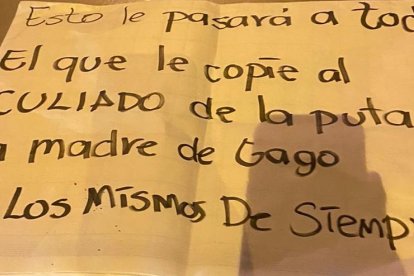 Esto le pasará a toc
El que le copie al
CULIADO de la puta
a madre de Gago
Los Mismos De Siemp